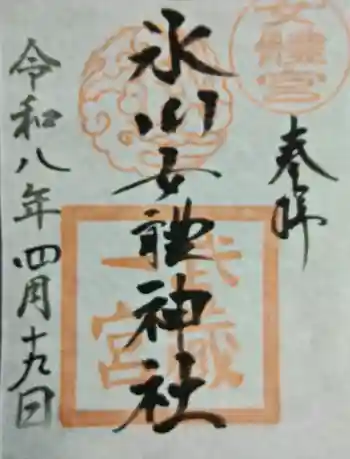 奉拝
氷川女體神社
令和八年四月十九日
武蔵
一宮